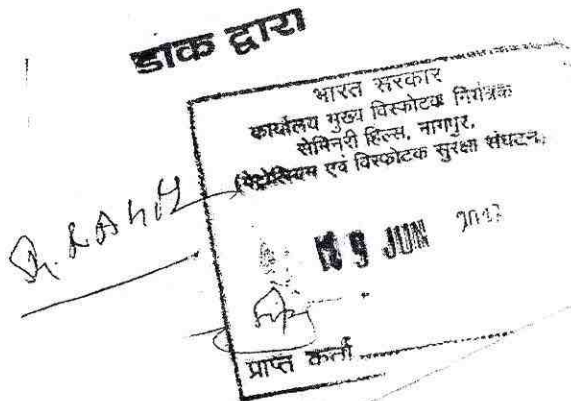 डाक द्वारा
भारत सरकार
कार्यालय मुख्य विस्फोटक नियंत्रक
सेमिनरी हिल्स, नागपुर,
(पेट्रोलियम एवं विस्फोटक सुरक्षा संघटन,
9 JUN
प्राप्त कर्ता